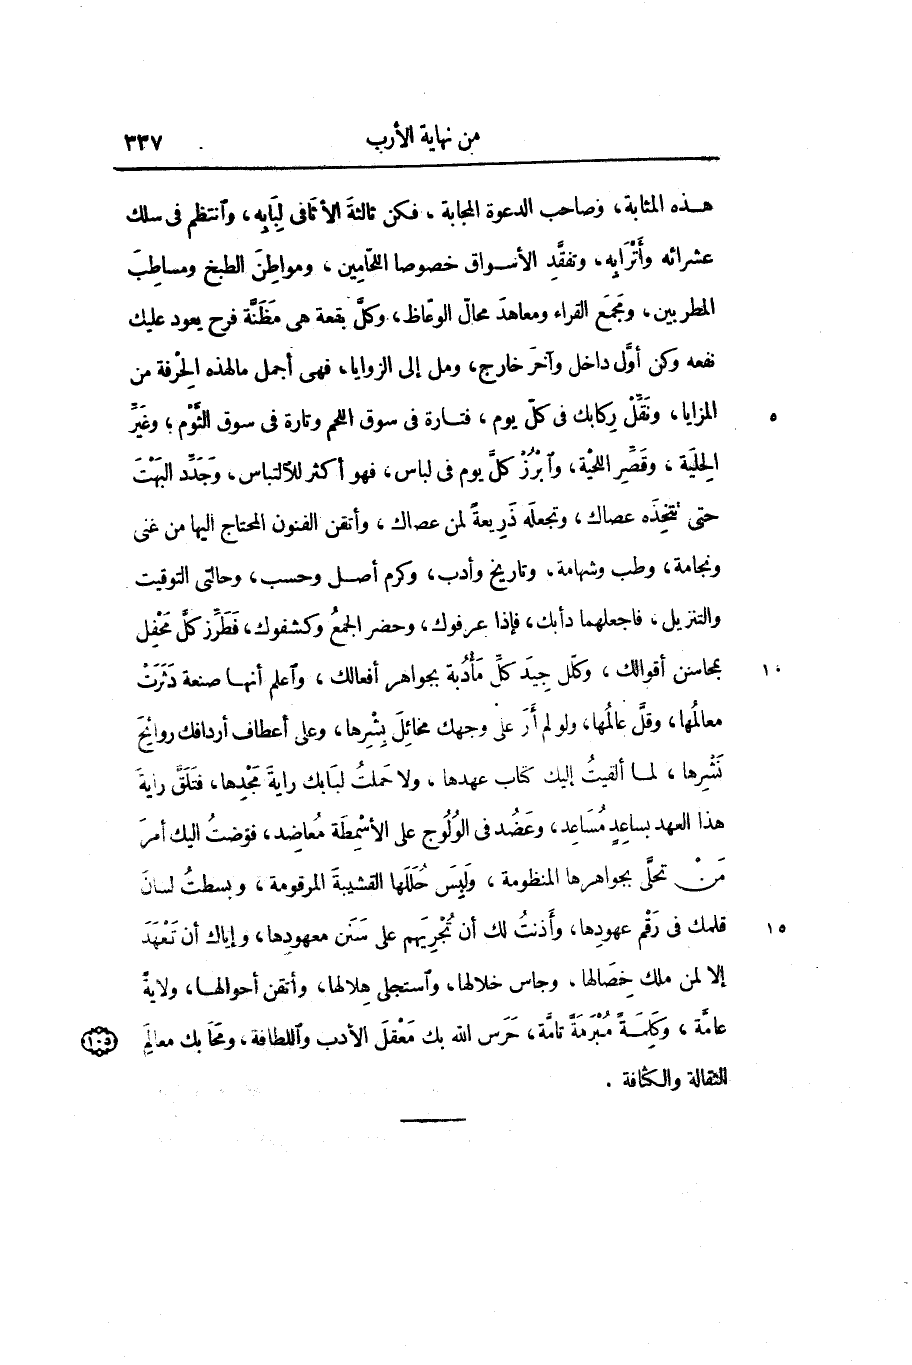 من نهاية الأرب ٣٣٧
هـذه المثابة، وصاحب الدعوة المجابة، فكن ثالثةَ الأثافى لِبَابِه، وٱنتظم فى سلك
عشرائه وأَتْرَابِه، وتفقَّدِ الأسـواق خصوصا اللحّامين، ومواطِنَ الطبخ ومساطِبَ
المطربين، ومَجمَعَ القراء ومعاهدَ محالّ الوعّاظ، وكلَّ بقعة هى مَظَنَّة فرح يعود عليك
نفعه وكن أوّل داخل وآخرَ خارج، ومل إلى الزوايا، فهى أجمل مالهذه الحِرْفة من
المزايا، ونَقِّلْ رِكابك فى كلّ يوم، فتـارة فى سوق اللحم وتارة فى سوق الثُّوْم؛ وغَيِّرْ ٥
الحِلية، وقَصِّرِ اللحية، وٱبْرُزْ كلَّ يوم فى لباس، فهو أكثر للآلتباس، وجَدِّد البَهْتَ
حتى تتّخِذَه عصاك، وتجعلَه ذَرِيعةً لمن عصاك، وأتقن الفنون المحتاج اليها من غنى
ونجامة، وطب وشهامة، وتاريخ وأدب، وكرم أصـل وحسب، وحالتى التوقيت
والتنزيل، فاجعلهما دأبك، فإذا عرفوك، وحضر الجمعُ وكشفوك، فَطَرِّز كلَّ مَحْفِل
بمحاسن أقوالك، وكلّل جِيدَ كلِّ مَأْدُبة بجواهر أفعالك، وٱعلم أنهـا صنعة دَثَرَتْ ١٠
معالمُها، وقلَّ عالِمُها، ولو لم أَرَ على وجهك مخائِلَ بِشْرِها، وعلى أعطاف أردافك روائِحَ
نَشْرِها، لمـا ألقيتُ إليك كتاب عهدها، ولا حَملتُ لبَابك رايةَ مَجْدِها، فتَلَقَّ رايةَ
هذا العهد بساعِدٍ مُسَاعِد، وعَضُد فى الوُلُوج على الأَسْمِطَة مُعاضِد، فوّضتُ اليك أمرَ
مَنْ تحلَّى بجواهرها المنظومة، ولَبِسَ حُلَلَها القشيبةَ المرقومة، وبسطتُ لسانَ
قلمك فى رَقْم عهودِها، وأَذنتُ لك أن تُجْرِيَهم على سَنَن معهودِها، وإياك أن تَعْهَدَ ١٥
إلا لمن ملك خِصَالها، وجاس خلالها، وٱستجلى هِلالها، وأتقن أحوالهـا، ولايةً
عامَّة، وكَلِمَـةً مُبْرَمَةً تامَّة، حَرَس الله بك مَعْقِلَ الأدب وٱللطافة، ومَحَا بك معالِمَ
الثقالة والكثافة.
١٠٥